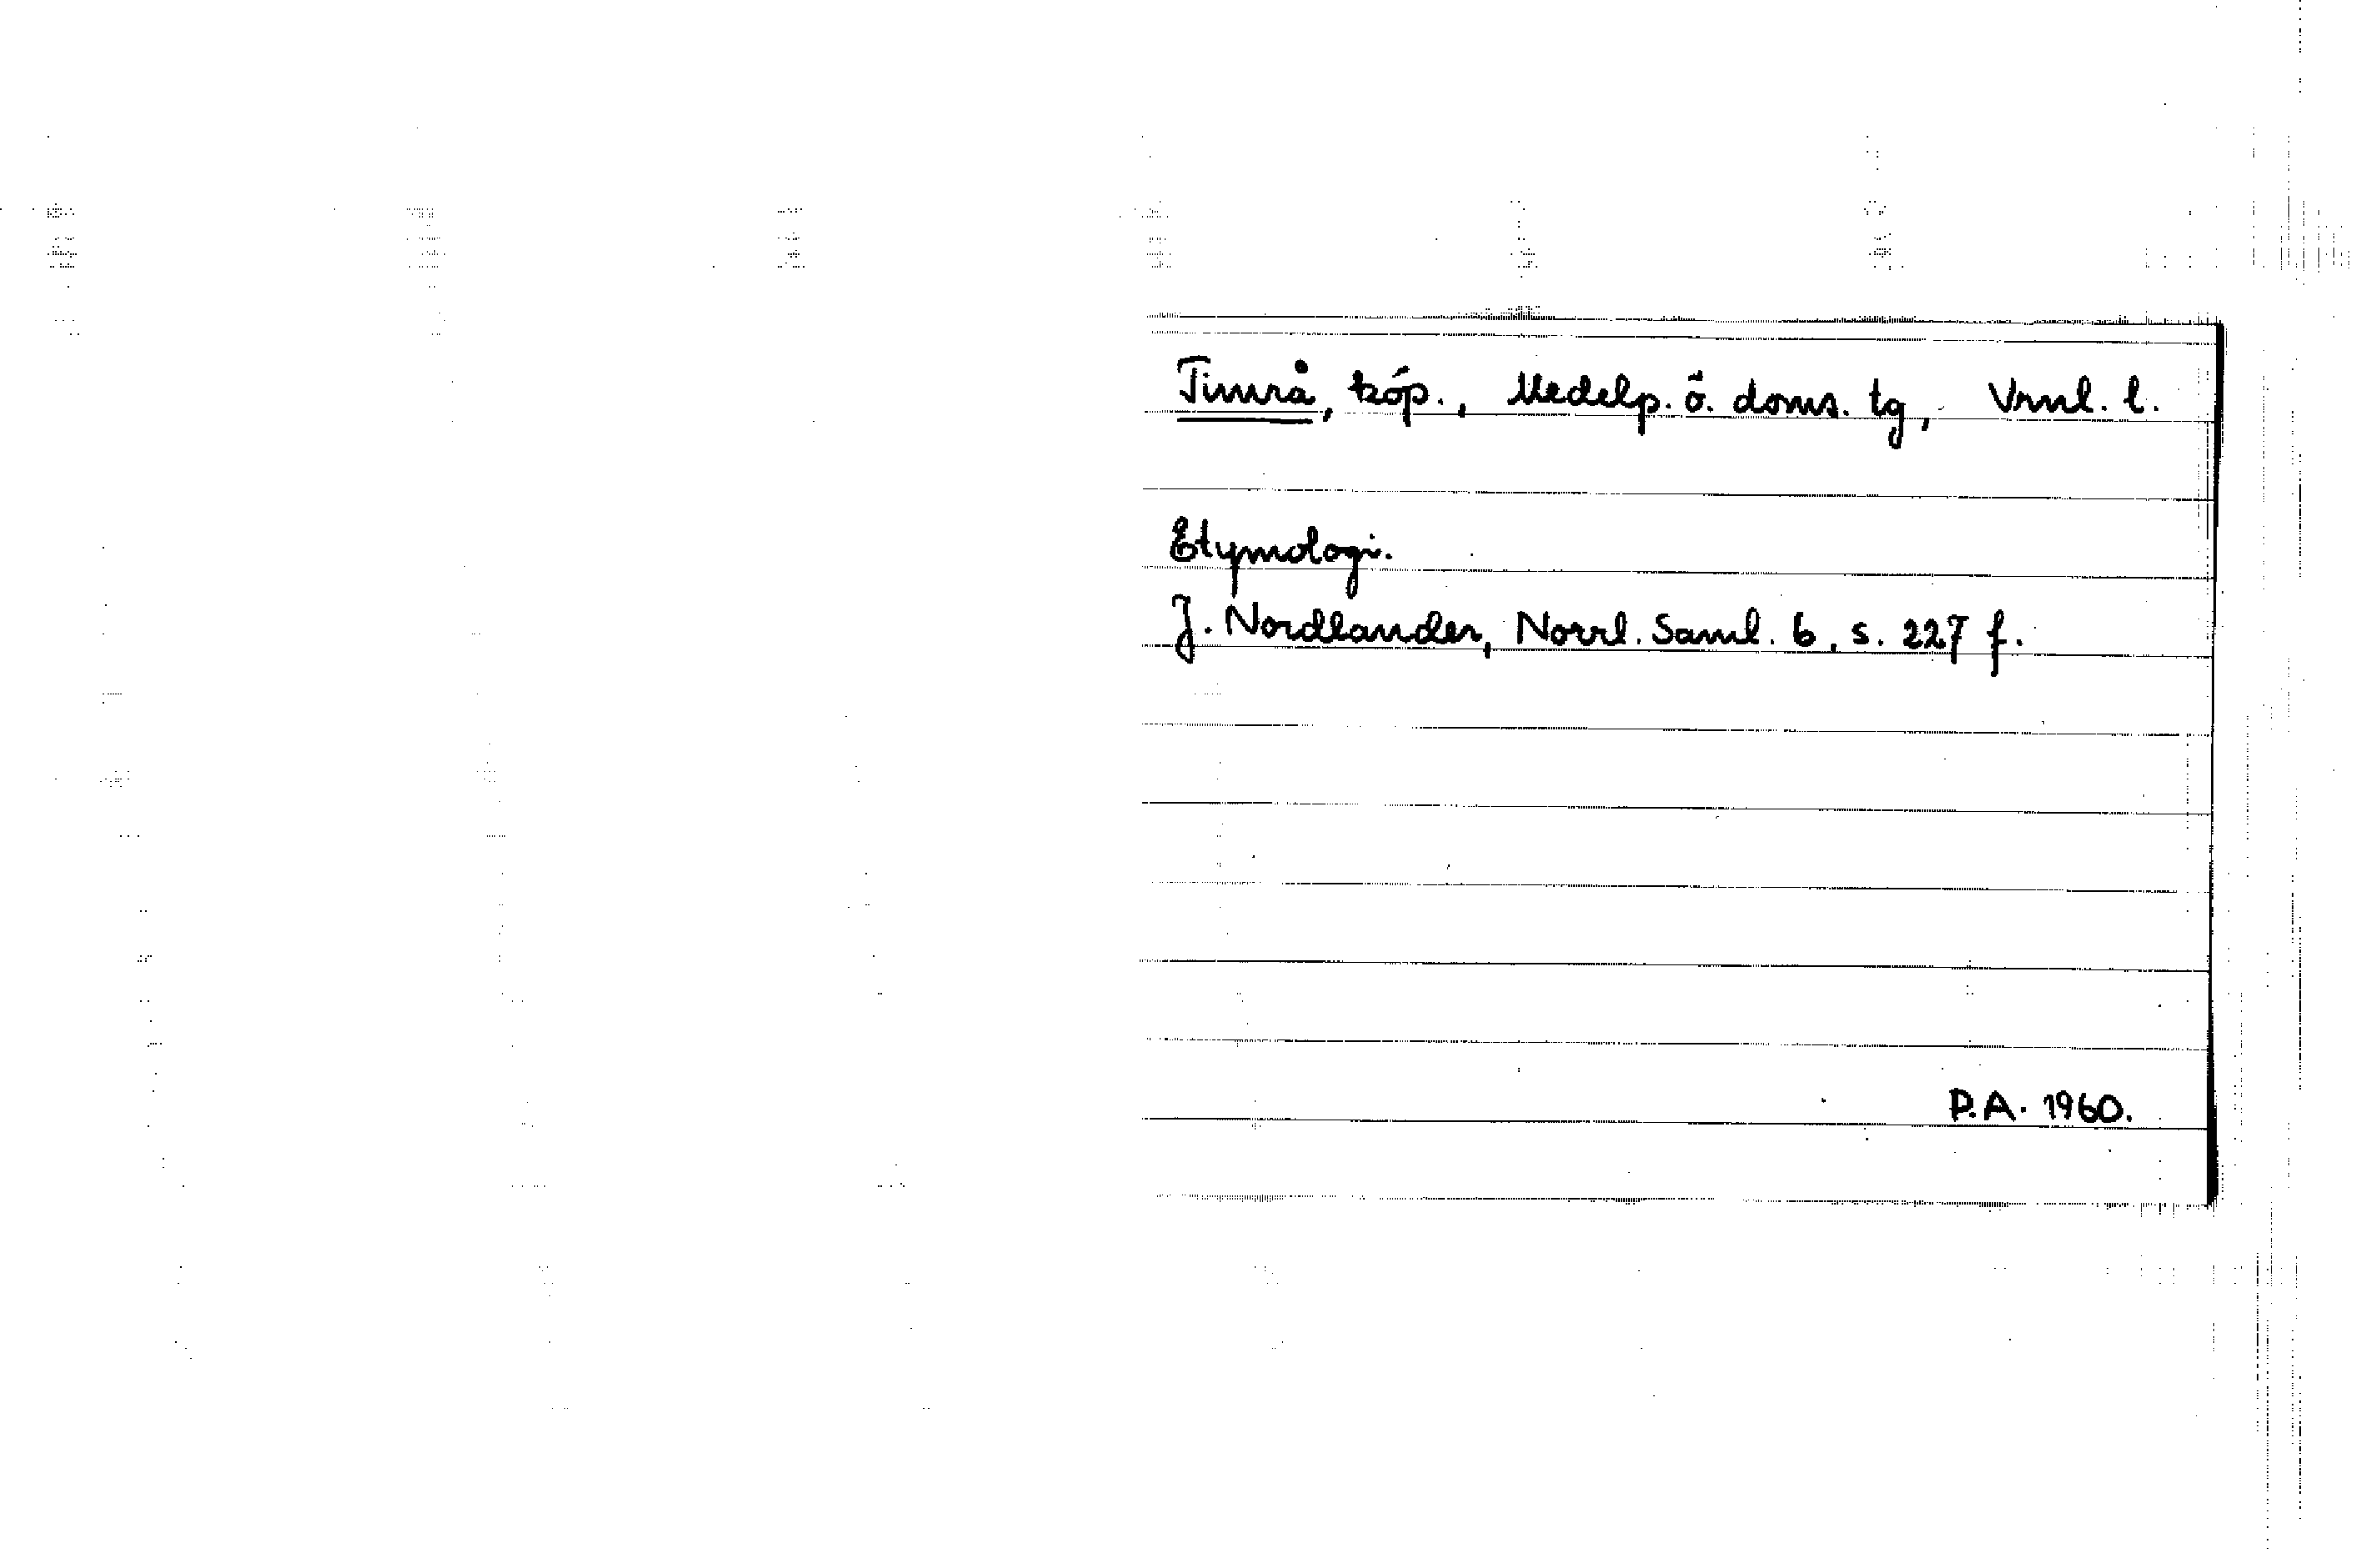 Timrå, köp., Medelp. ö. doms. tg, Vrnl. l.
Etymologi.
J. Nordlander, Norrl. Saml. 6, s. 227 f.
P.A. 1960.